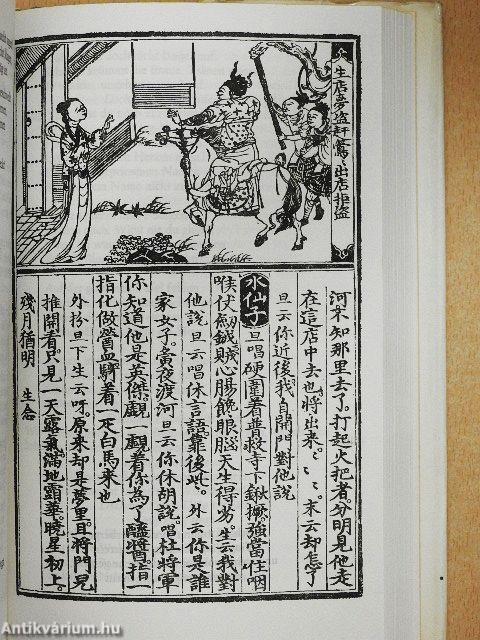 生店夢盗赶鶯〻出店拒盗
河不知那里去了。打起火把者。分明見他走
在這店中去也。將出來。〻〻。末云却怎了
旦云你近後。我自開門對他說
水仙子 旦唱硬圍着普救寺下鍬撅。強當住咽
喉仗劒鉞。賊心腸饞眼腦天生得劣。生云我對
他說旦云唱休言語。靠後些。外云你是誰
家女子。夤夜渡河旦云你休胡說。唱杜將軍
你知道他是英傑。觀一觀着你為了醯醬。指一
指化做醟血。騎着一疋白馬來也
外扮旦下生云呀。原來却是夢里。且將門兒
推開看。只見一天露氣。滿地霜華。曉星初上。
殘月猶明 生念
Antikvárium.hu